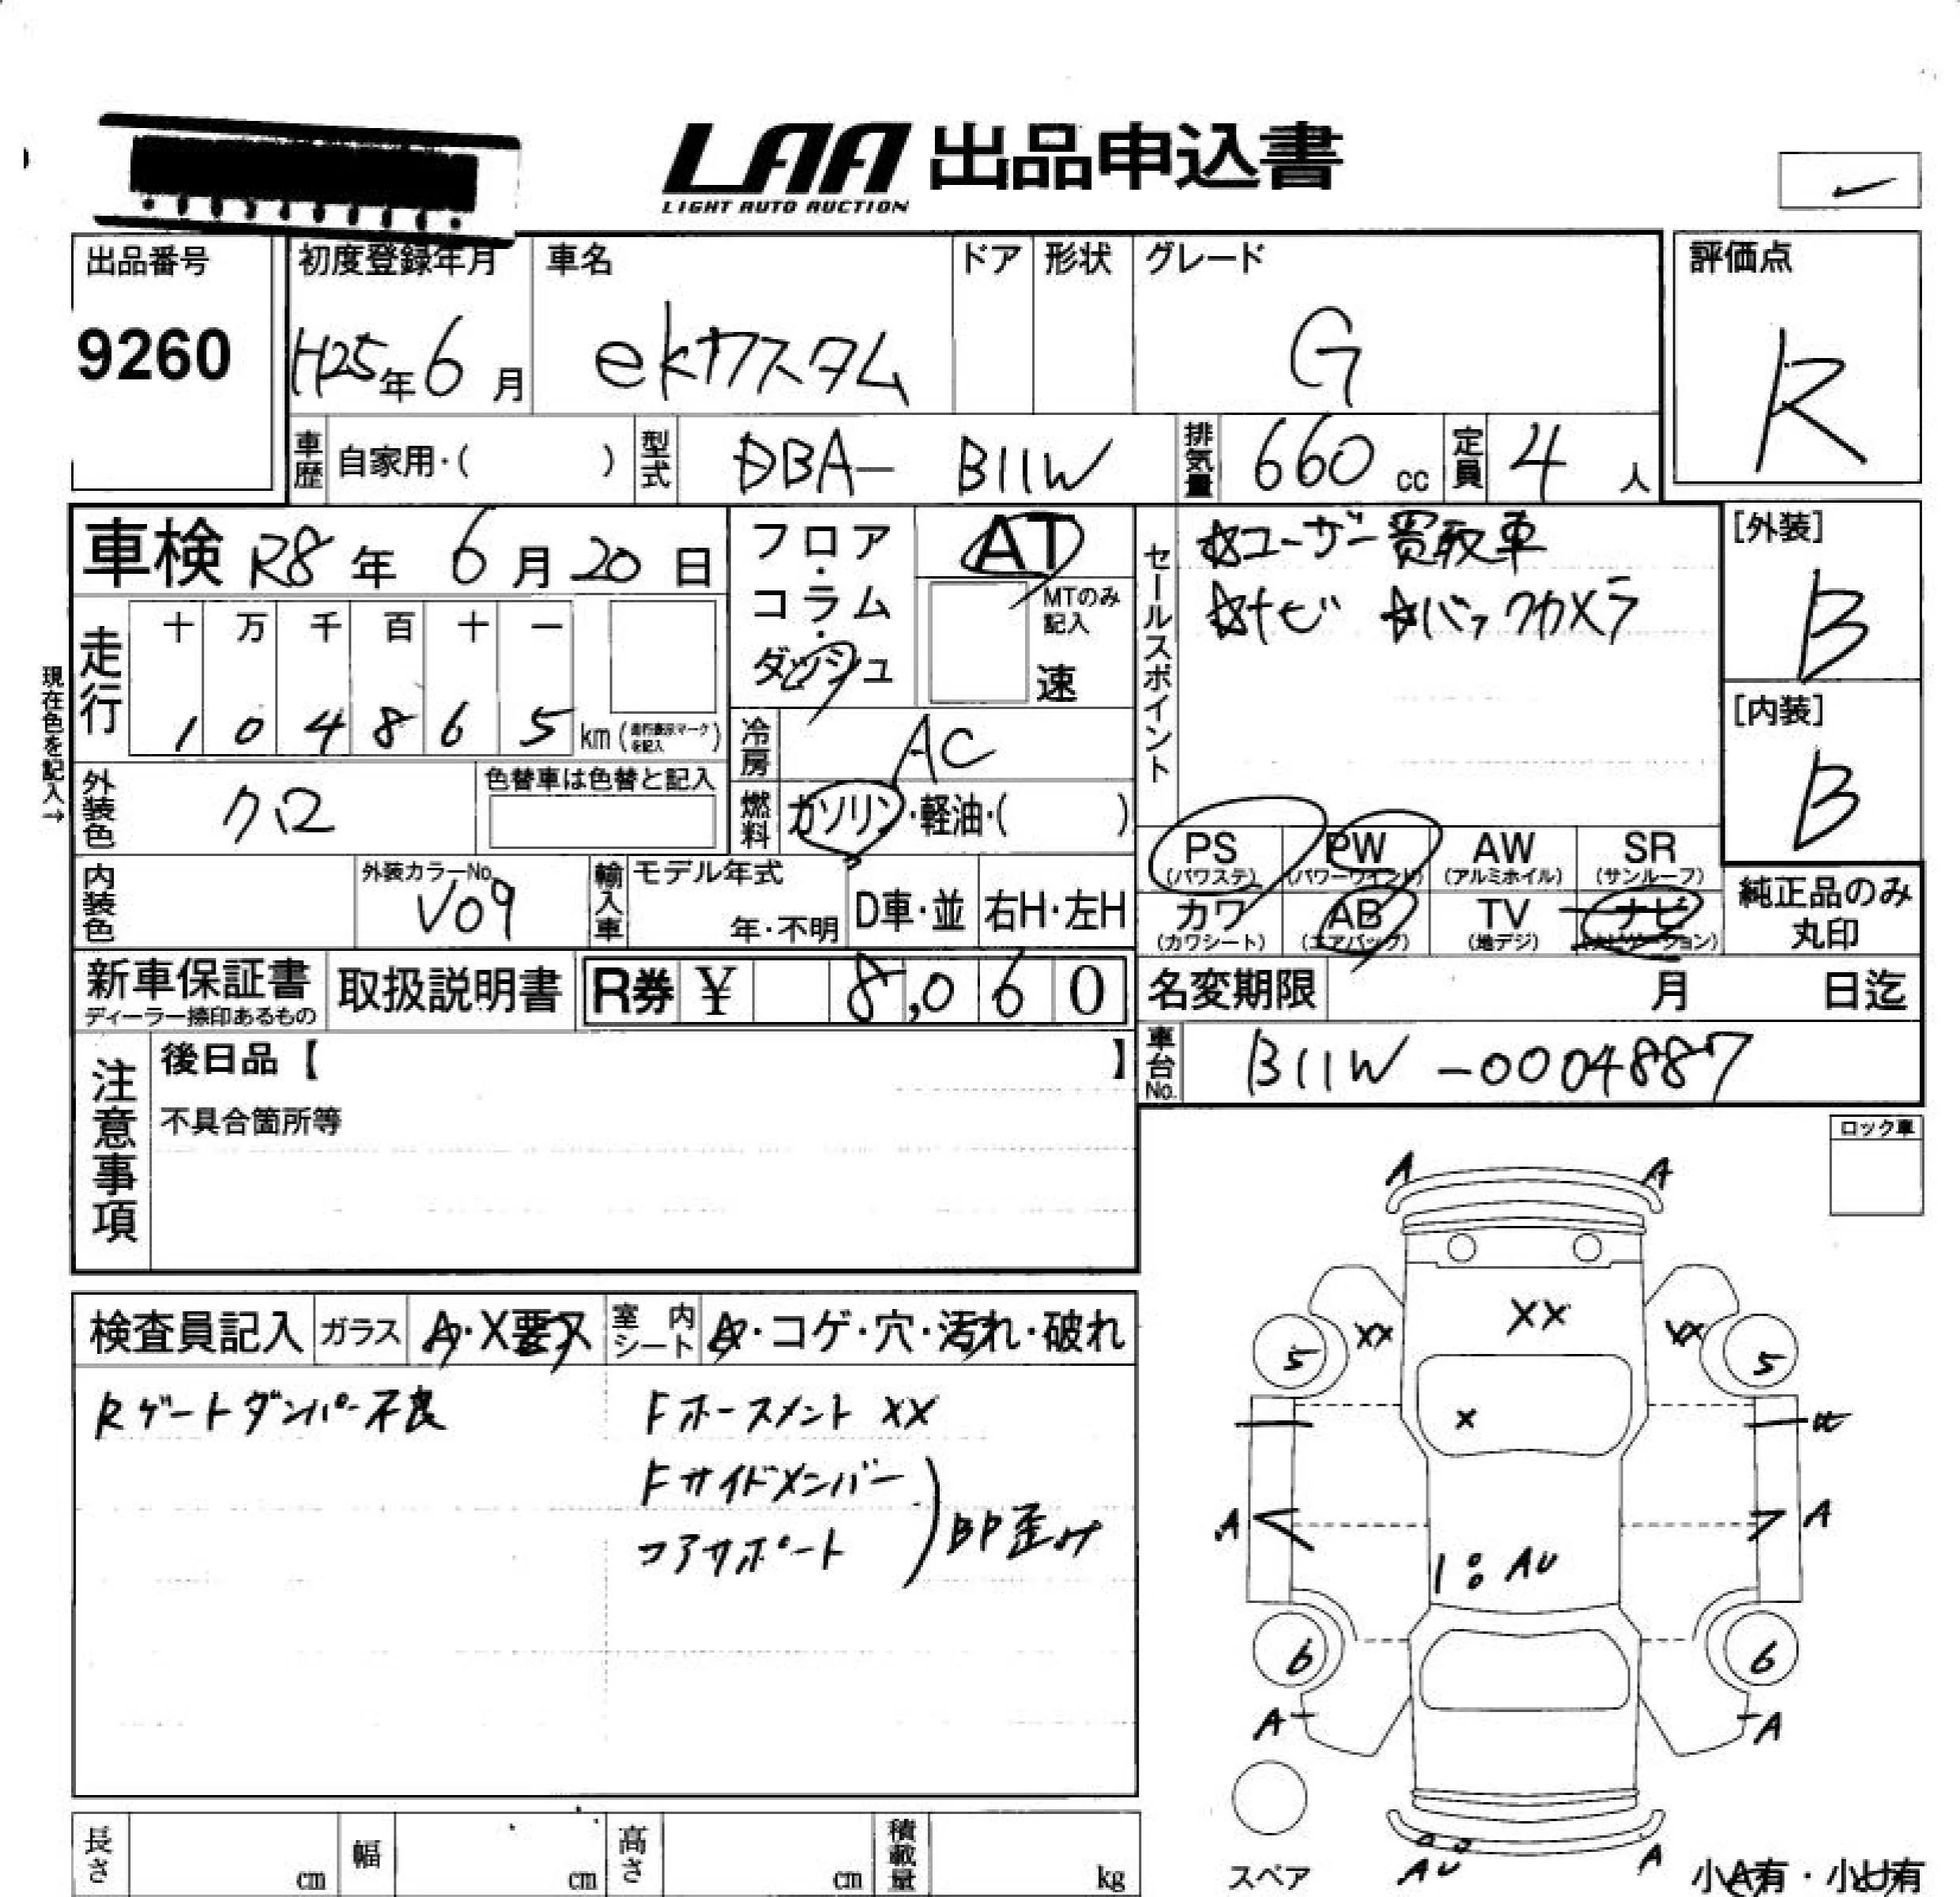 LAA 出品申込書
LIGHT AUTO AUCTION
出品番号
9260
初度登録年月
H25年6月
車名
ekカスタム
ドア
形状
グレード
G
評価点
R
車歴 自家用・( )
型式 DBA- B11W
排気量 660 cc
定員 4人
車検 R8年 6月 20日
フロア・コラム・ダッシュ
AT
MTのみ記入
速
走行
十 万 千 百 十 一
1 0 4 8 6 5 km (走行表示マークを記入)
現在色を記入→
冷房 AC
外装色 クロ
色替車は色替と記入
燃料 ガソリン・軽油・( )
内装色
外装カラーNo. V09
輸入車
モデル年式
年・不明
D車・並
右H・左H
セールスポイント
☆ユーザー買取車
☆ナビ ☆バックカメラ
[外装]
B
[内装]
B
PS (パワステ)
PW (パワーウインド)
AW (アルミホイル)
SR (サンルーフ)
カワ (カワシート)
AB (エアバッグ)
TV (地デジ)
ナビ (ナビゲーション)
純正品のみ丸印
新車保証書
ディーラー捺印あるもの
取扱説明書
R券 ¥ 8,060
名変期限 月 日迄
車台No. B11W-0004887
注意事項
後日品【 】
不具合箇所等
ロック車
検査員記入
ガラス A・X要ス
室内シート A・コゲ・穴・汚れ・破れ
Rゲートダンパー不良
Fホースメント XX
Fサイドメンバー
コアサポート
BP歪み
A A
XX XX XX
5 5
X
A A
1: AU
6 6
A A
AU A
スペア
小A有・小U有
長さ cm
幅 cm
高さ cm
積載量 kg